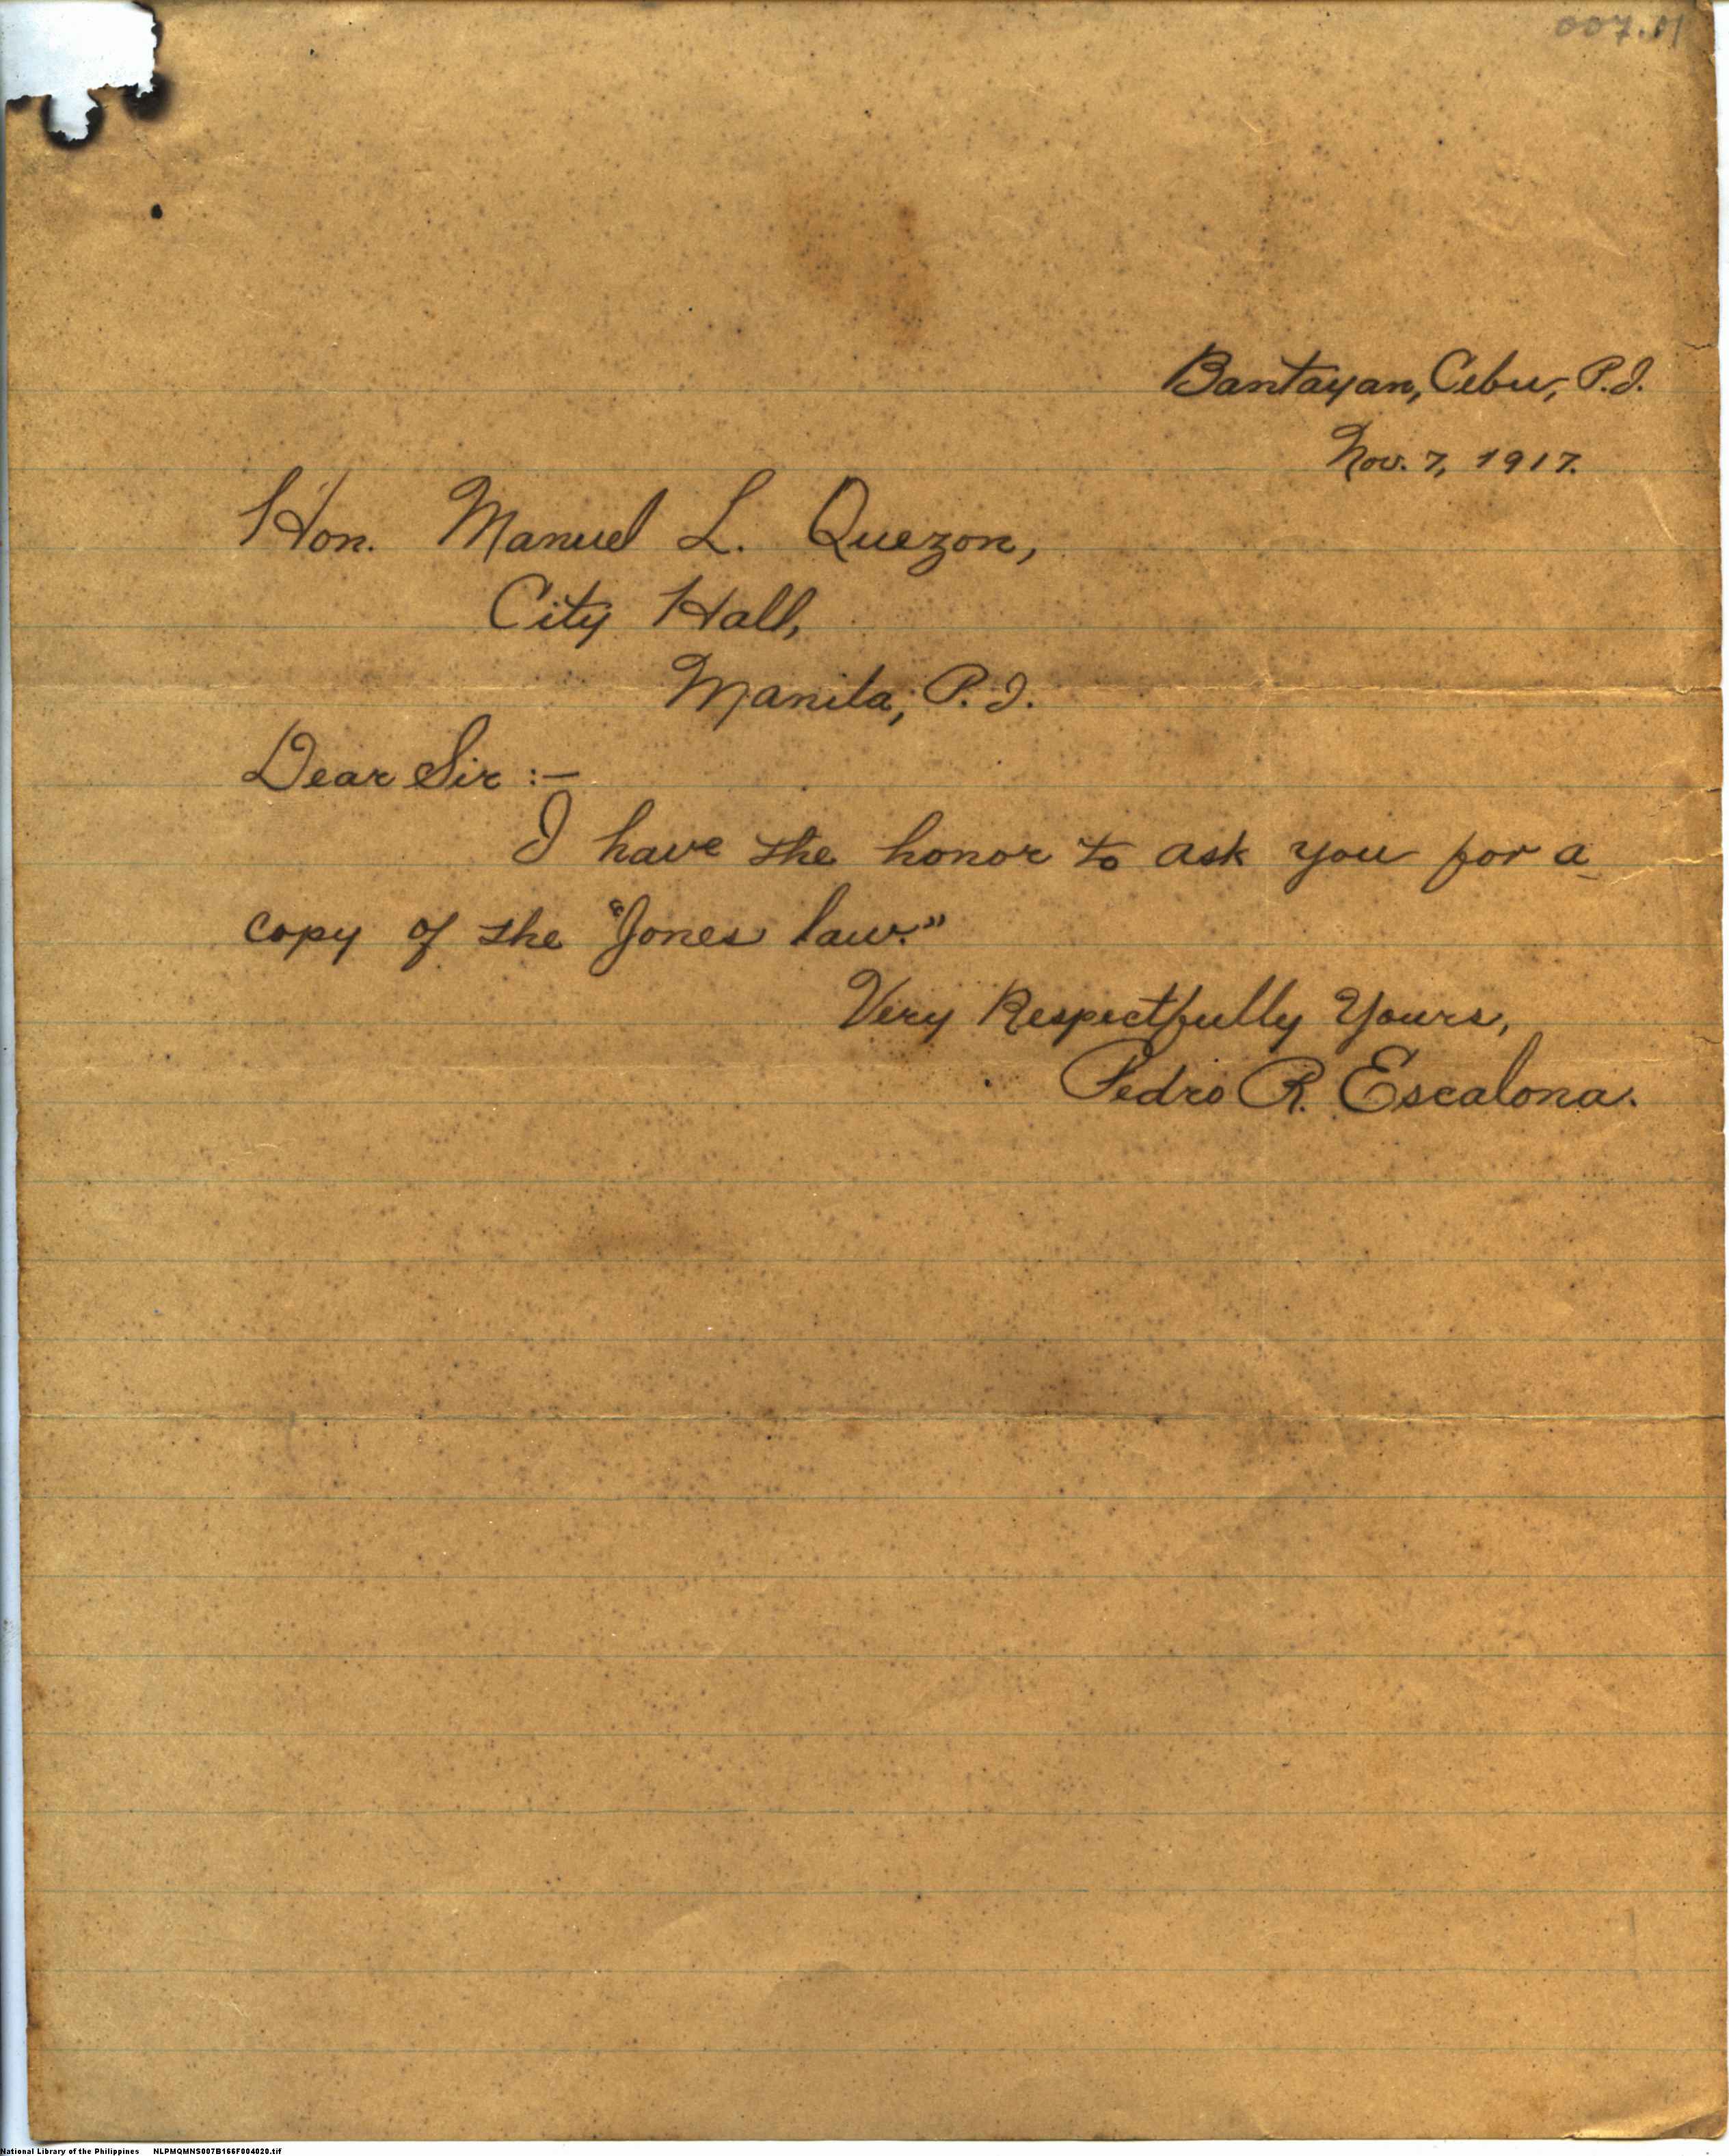 007.01
Bantayan, Cebu, P.I.
Nov. 7, 1917.
Hon. Manuel L. Quezon,
City Hall,
Manila, P.I.
Dear Sir :—
I have the honor to ask you for a
copy of the "Jones law."
Very Respectfully Yours,
Pedro R. Escalona.
National Library of the Philippines NLPMQMNS007B166F004020.tif